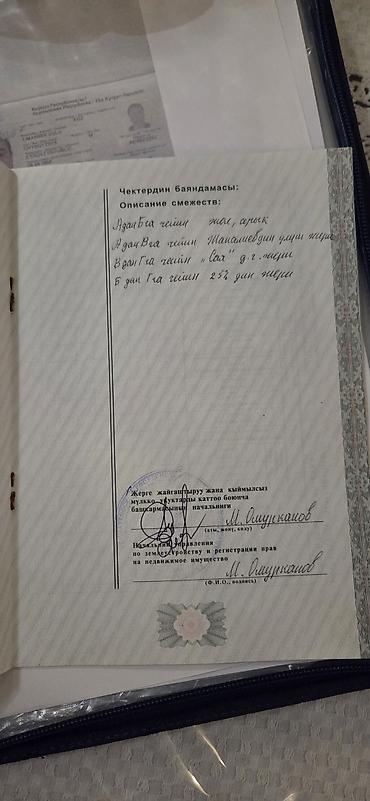 Кыргыз Республикасы
Чектердин баяндамасы:
Описание смежеств:
А дан Б га чейин жол, арык
А дан В га чейин жери
В дан Г га чейин „Сая" д.ч. жери
Б дан Г га чейин 25% дин жери
Жерге жайгаштыруу жана кыймылсыз
мүлккө укуктарды каттоо боюнча
башкармасынын начальниги
М. Омурканов
(аты, жөнү, колу)
Начальник управления
по землеустройству и регистрации прав
на недвижимое имущество
М. Омурканов
(Ф.И.О., подпись)